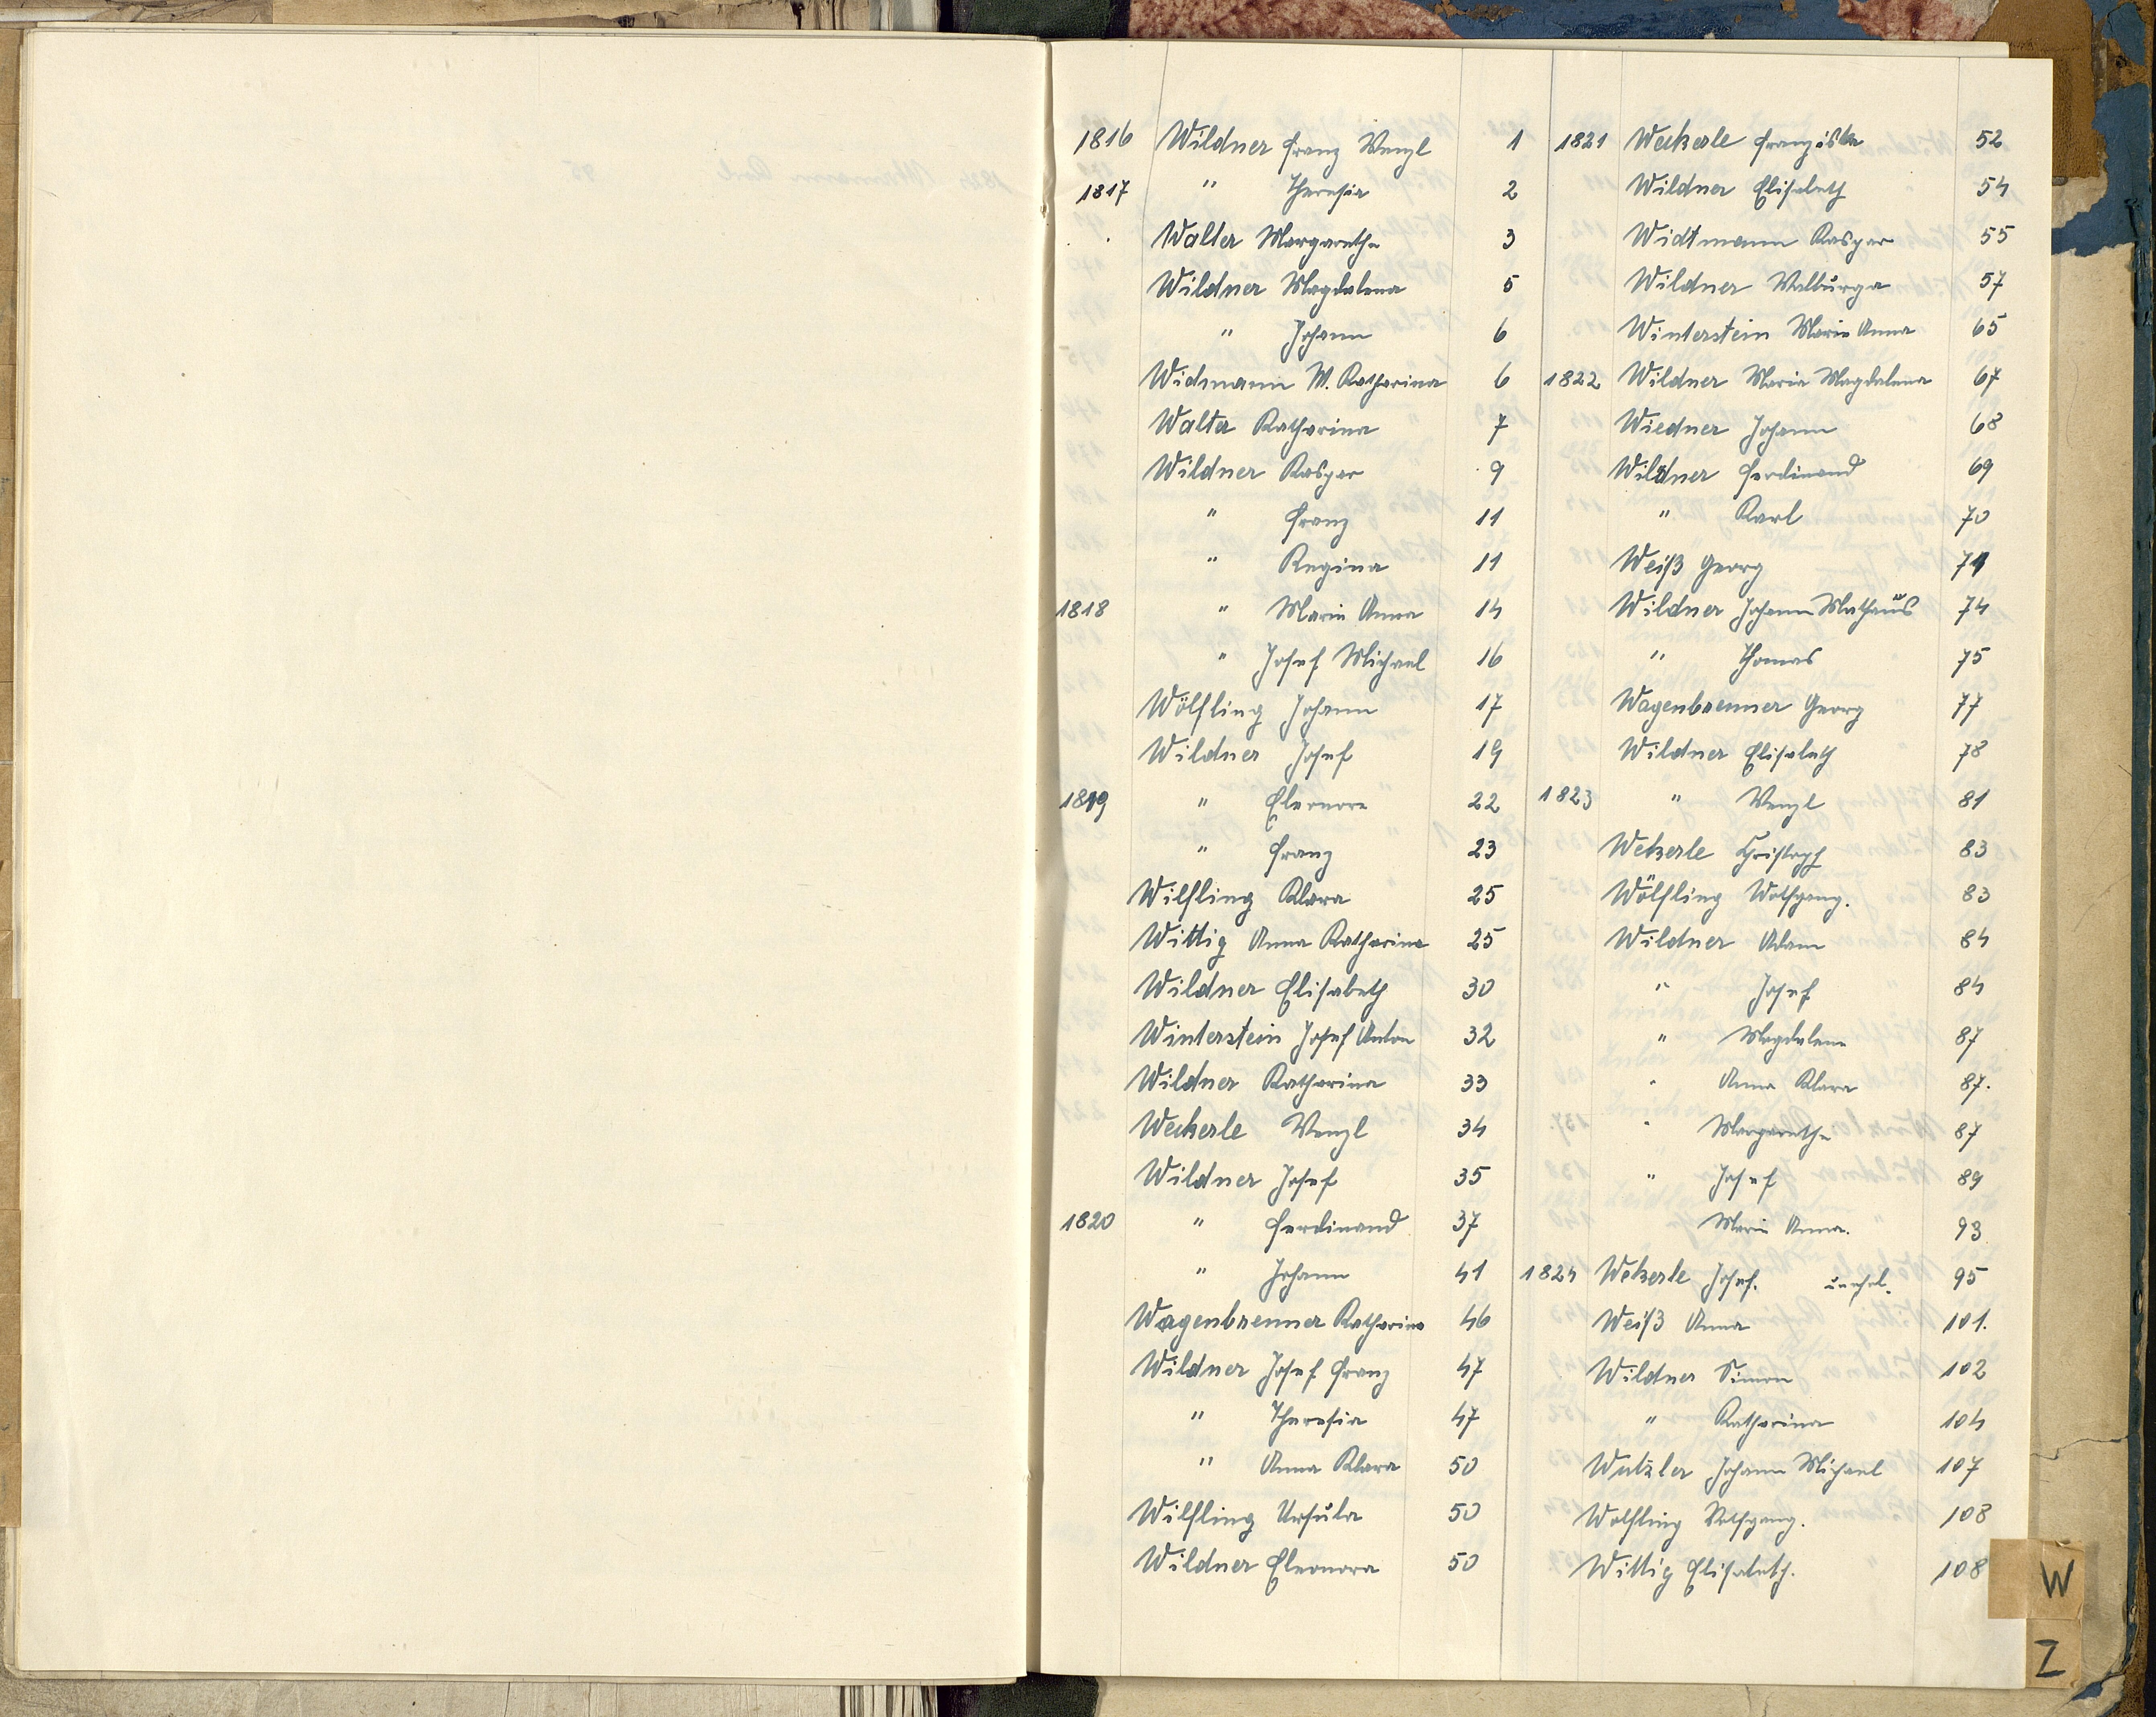 1816 Wildner Franz Wenzl 1
1817 " Theresia 2
Walter Margarethe 3
Wildner Magdalena 5
" Johann 6
Widmann M. Katharina 6
Walter Katharina 7
Wildner Kaspar 9
" Franz 11
" Regina 11
1818 " Maria Anna 14
" Josef Michael 16
Wölfling Johann 17
Wildner Josef 19
1819 " Eleonore 22
" Franz 23
Wilfling Klara 25
Wittig Anna Katharina 25
Wildner Elisabeth 30
Winterstein Josef Anton 32
Wildner Katharina 33
Weckerle Wenzl 34
Wildner Josef 35
1820 " Ferdinand 37
" Johann 41
Wagenbrenner Katharina 46
Wildner Josef Franz 47
" Theresia 47
" Anna Klara 50
Wilfling Ursula 50
Wildner Eleonora 50
1821 Weckerle Franziska 52
Wildner Elisabeth 54
Widtmann Kaspar 55
Wildner Walburga 57
Winterstein Maria Anna 65
1822 Wildner Maria Magdalena 67
Wiedner Johann 68
Wildner Ferdinand 69
" Karl 70
Weiß Georg 71
Wildner Johann Mathäus 74
" Thomas 75
Wagenbrenner Georg 77
Wildner Elisabeth 78
1823 " Wenzl 81
Wekerle Christoph 83
Wölfling Wolfgang. 83
Wildner Adam 84
" Josef 84
" Magdalena 87
" Anna Klara 87.
" Margarethe 87
" Josef 89
Maria Anna. 93
1824 Wekerle Josef. unehel. 95
Weiß Anna 101.
Wildner Simon 102
" Katharina 104
Wutzler Johann Michael 107
Wolfling Wolfgang. 108
Wittig Elisabeth. 108
W
Z